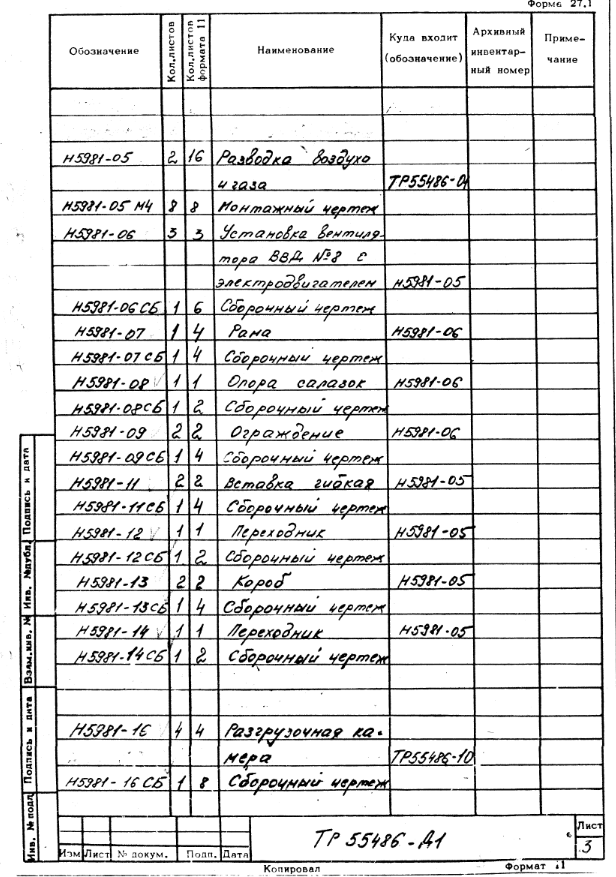 Форма 27.1
Обозначение Кол.листов Кол.листов формата 11 Наименование Куда входит (обозначение) Архивный инвентар- ный номер Приме- чание
Н5981-05 2 16 Разводка воздуха
и газа ТР55486-01
Н5981-05 М4 8 8 Монтажный чертеж
Н5981-06 3 3 Установка вентиля-
тора ВВД №8 с
электродвигателем Н5981-05
Н5981-06СБ 1 6 Сборочный чертеж
Н5981-07 1 4 Рама Н5981-06
Н5981-07СБ 1 4 Сборочный чертеж
Н5981-08 1 1 Опора салазок Н5981-06
Н5981-08СБ 1 2 Сборочный чертеж
Н5981-09 2 2 Ограждение Н5981-06
Н5981-09СБ 1 4 Сборочный чертеж
Н5981-11 2 2 Вставка гибкая Н5981-05
Н5981-11СБ 1 4 Сборочный чертеж
Н5981-12 1 1 Переходник Н5981-05
Н5981-12СБ 1 2 Сборочный чертеж
Н5981-13 2 2 Короб Н5981-05
Н5981-13СБ 1 4 Сборочный чертеж
Н5981-14 1 1 Переходник Н5981-05
Н5981-14СБ 1 2 Сборочный чертеж
Н5981-16 4 4 Разгрузочная ка-
мера ТР55486-10
Н5981-16СБ 1 8 Сборочный чертеж
Инв. № подл. Подпись и дата Взам.инв. № Инв. №дубл. Подпись и дата
Изм Лист № докум. Подп. Дата
ТР 55486-Д1
Лист
3
Копировал Формат 11